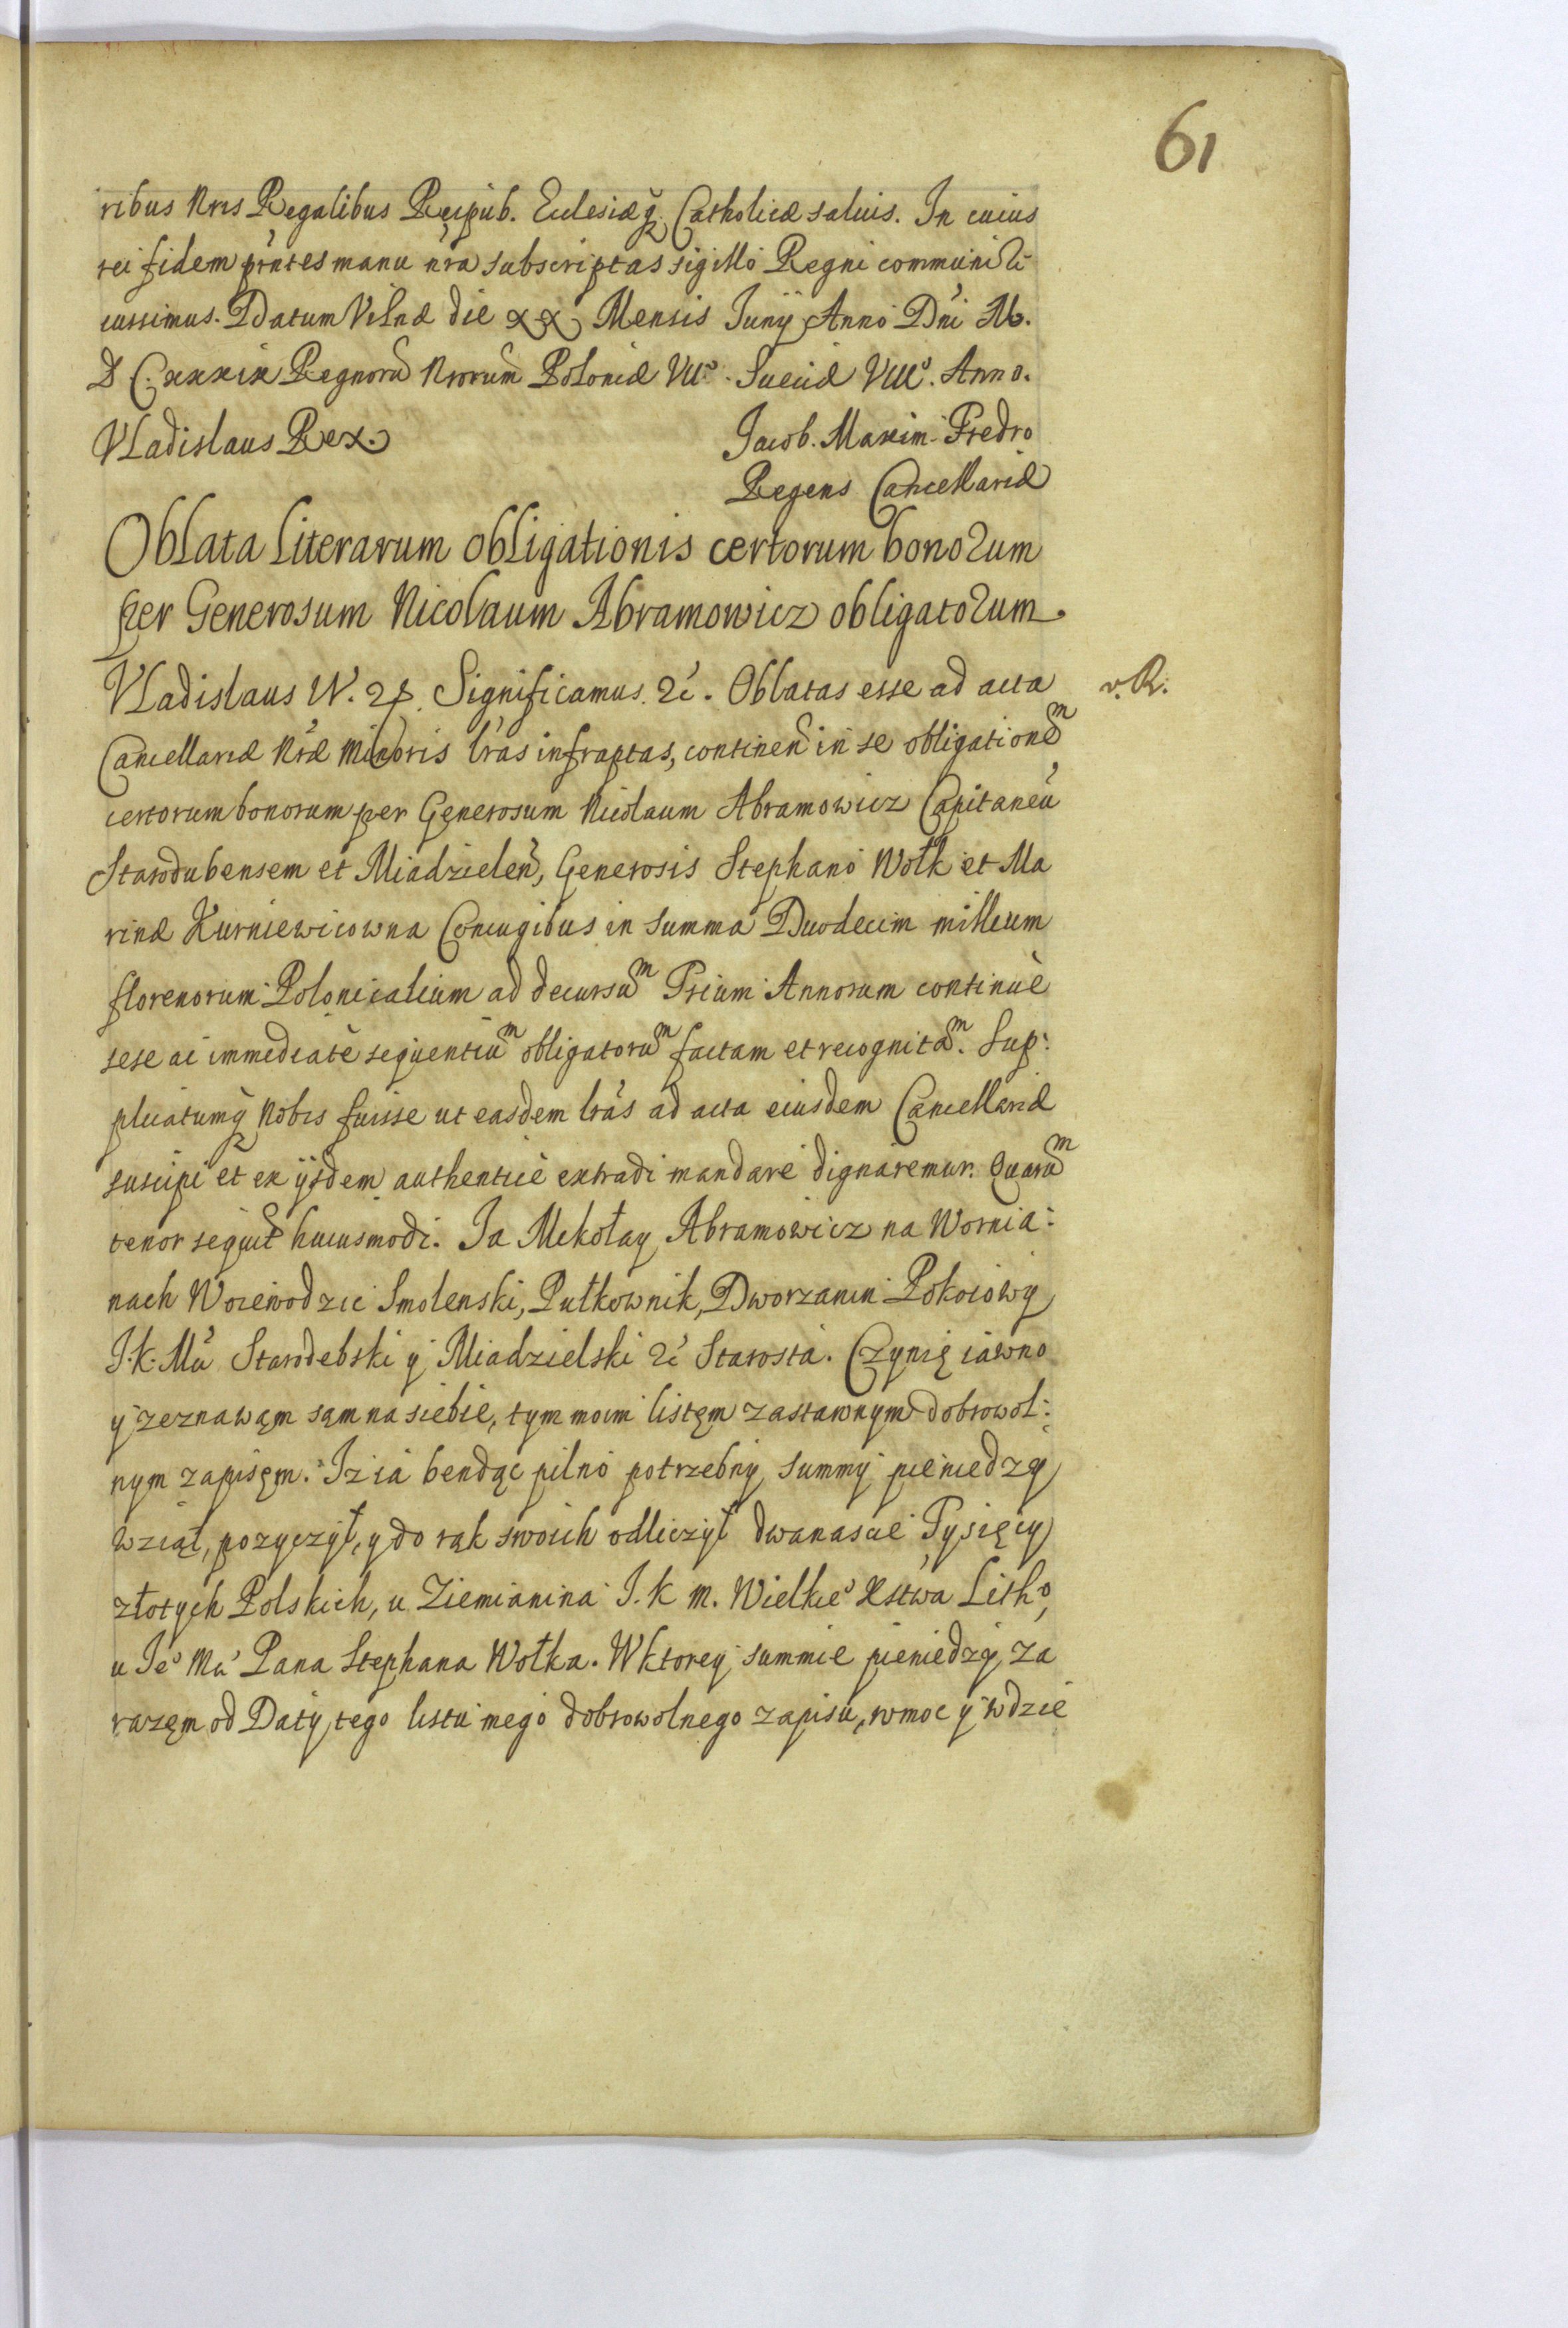 61
ribus Nris Regalibus Reipub. Eclesiæq. Catholicæ saluis. In cuius
rei fidem pr̃ntes manu nr̃a subscriptas sigillo Regni communi̇ri
iussimus. Datum Vilnæ die XX Mensis Iunij Anno Dni M.
D C. xxxix Regnorũ Nrorum Poloniæ VII⁰. Sueciæ VIII⁰. Anno.
Vladislaus Rex. Jacob. Maxim. Fredro
Regens Cancellariæ
Oblata literarum obligationis certorum bonorum
per Generosum Nicolaum Abramowicz obligatorum.
Vladislaus IV. Significamus &c. Oblatas esse ad acta v. R.
Cancellariæ Nræ Minoris lras infraptas, contineñ in se obligationem
certorum bonorum per Generosum Nicolaum Abramowicz Capitaneũ
Starodubensem et Miadzieleñ, Generosis Stephano Wołk et Ma
rinæ Kurniewicowna Coniugibus in summa Duodecim millium
florenorum Polonicalium ad decursum Trium Annorum continuè
sese ac immediatè sequentium obligatorum factam et recognitam. Sup:
plicatumq Nobis fuisse ut easdem lras ad acta eiusdem Cancellariæ
suscipi et ex ijsdem authenticè extradi mandare dignaremur. Quarum
tenor sequit huiusmodi. Ja Mikołay Abramowicz na Wornia:
nach Woiewodzic Smolenski, Pułkownik, Dworzanin Pokoiowy
J. K. Mci Starodebski y Miadzielski &c Starosta. Czynię iawno
y zeznawąm sąm na siebie, tym moim listęm zastawnym dobrowol:
nym zapisęm. Iz ia bendąc pilno potrzebny summy pieniedzy
wziął, pozyczył, y do rąk swoich odliczył dwanascie Tysięcy
złotych Polskich, u Ziemianina J. K M. Wielkie⁰ Xstwa Lith⁰,
u Je⁰ Mci Pana Stephana Wołka. W ktorey summie pieniedzy za
razęm od Daty tego listu mego dobrowolnego zapisu, w moc y w dzie